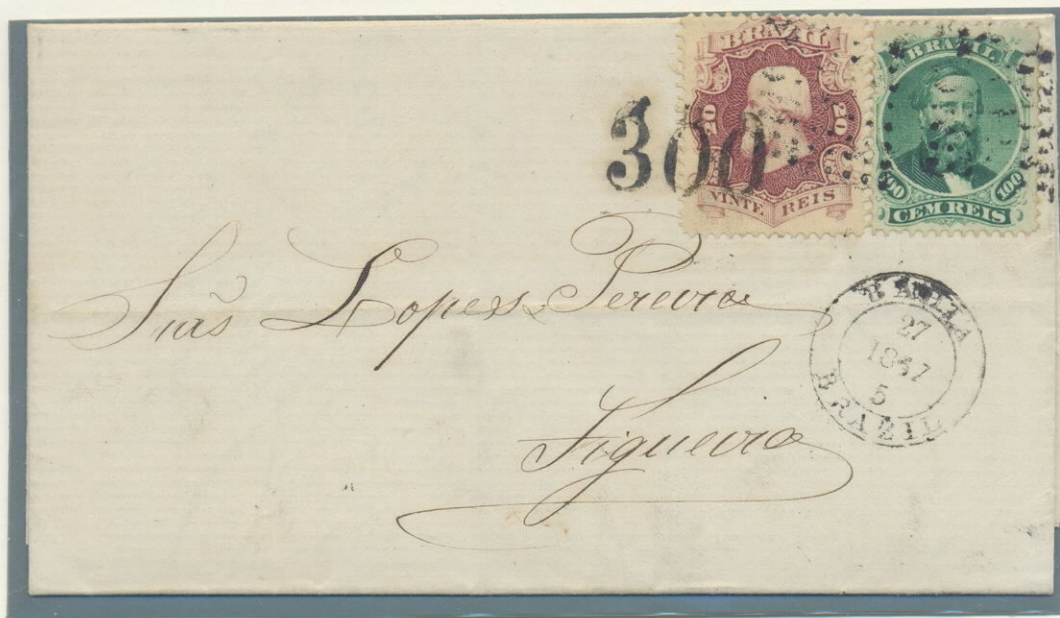 BRAZIL
20 20
VINTE REIS
BRAZIL
100 100
CEM REIS
300
Luis Lopes Pereira
Figueira
BAHIA
27
1867
5
BRAZIL